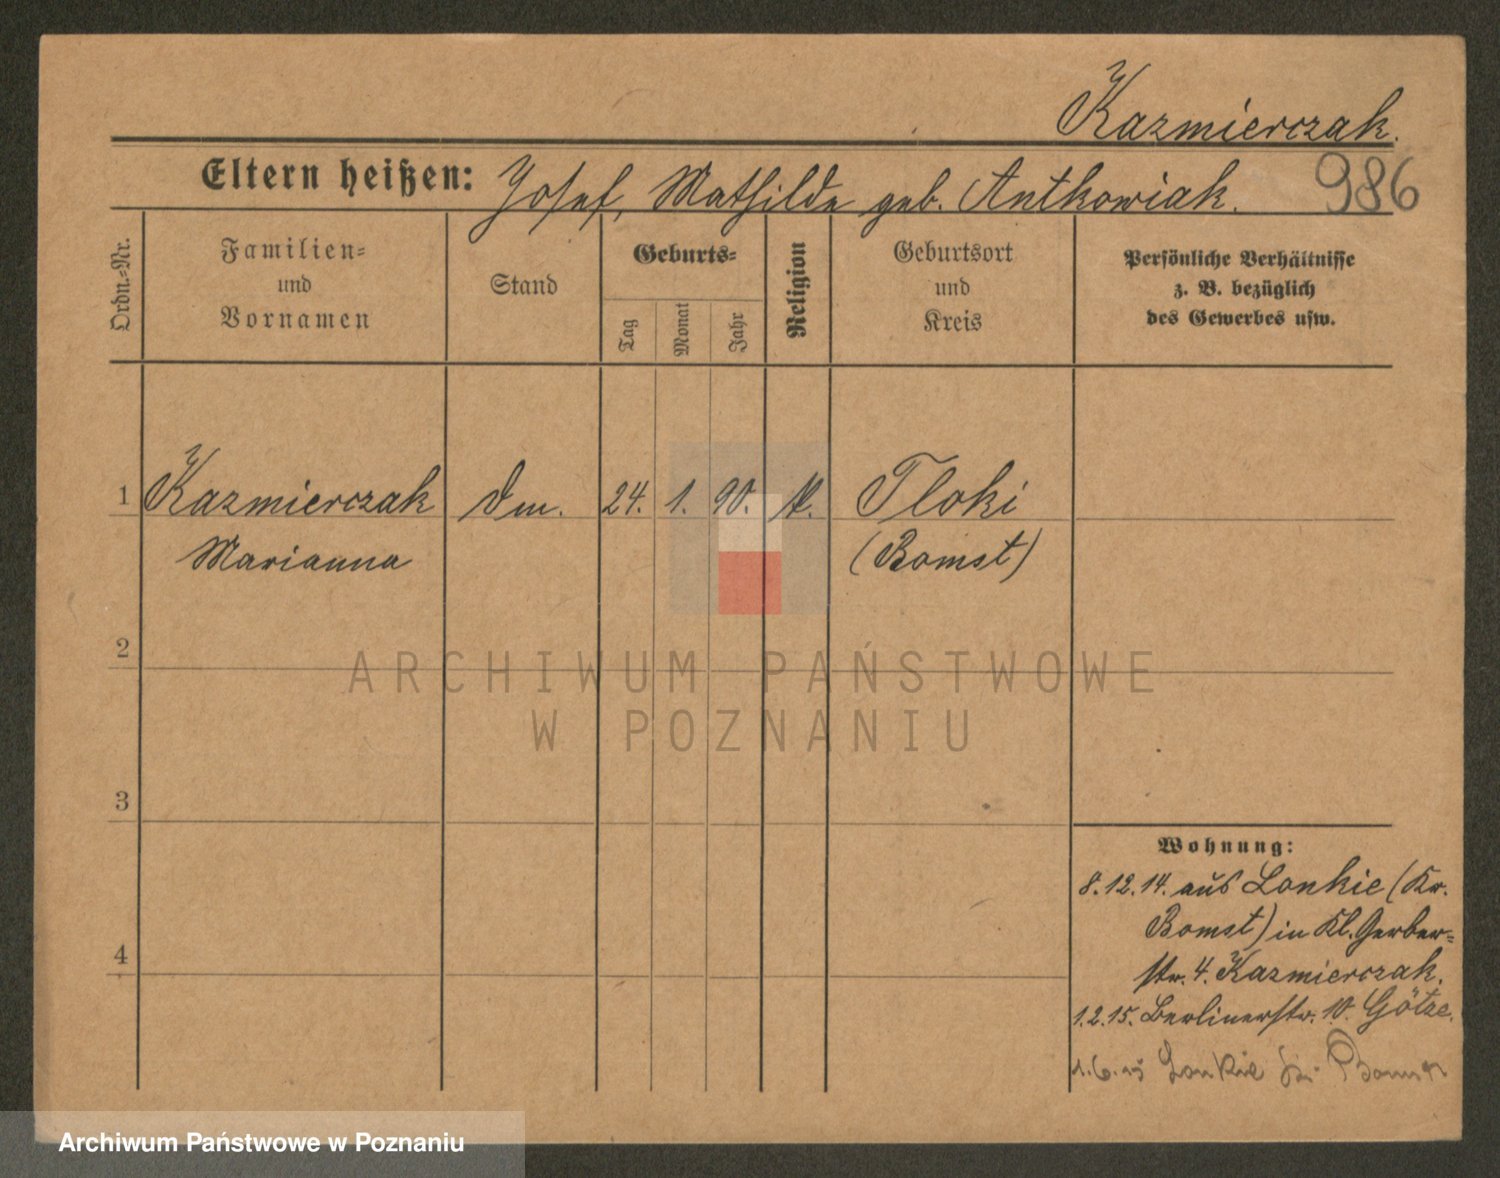 Kazmierczak.
Eltern heißen: Josef, Mathilde geb. Antkowiak.
986
Ordn.-Nr.
Familien-
und
Vornamen
Stand
Geburts-
Tag
Monat
Jahr
Religion
Geburtsort
und
Kreis
Persönliche Verhältnisse
z. B. bezüglich
des Gewerbes usw.
1 Kazmierczak Dm. 24. 1. 90. k. Tloki
Marianna (Bomst)
2
ARCHIWUM PAŃSTWOWE
W POZNANIU
3
Wohnung:
8.12.14. aus Lonkie (Kr.
Bomst) in Kl. Gerber-
4
str. 4. Kazmierczak.
1.2.15. Berlinerstr. 10. Götze.
1.6.15 Lonkie Bomst
Archiwum Państwowe w Poznaniu